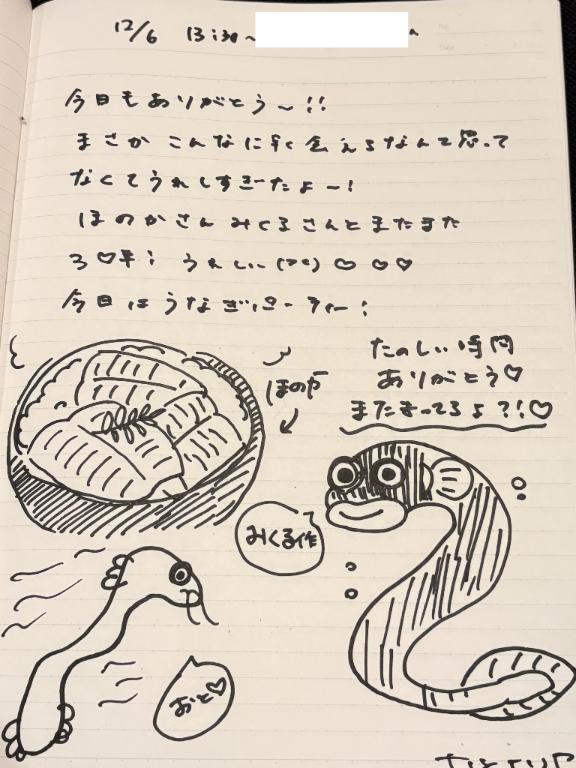 12/6 13:30〜
今日もありがとう〜!!
まさかこんなに早く会えるなんて思って
なくてうれしすぎたよ〜!
ほのかさんみくるさんとまたまた
3♡早! うれしい ♡♡♡
今日はうなぎぱーてぃー!
たのしい時間
ありがとう♡
またまってるよ?!♡
ほのか
みくる作
おと♡